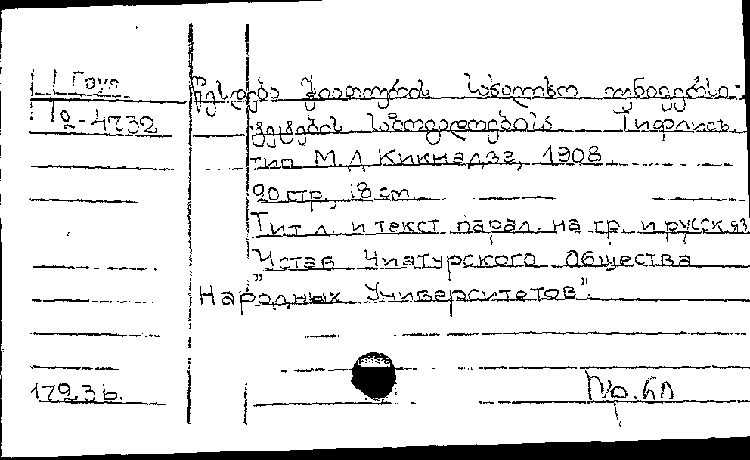 Груз
12-4732
წესდება ჭიათურის სახალხო უნივერსი-
ტეტების საზოგადოებისა Тифлисъ
тип М. Д Кикнадзе, 1908
20 стр, 18 см
Тит л и текст парал. на гр. и русск яз
Устав Чиатурского Общества
"Народных Университетов".
17236.